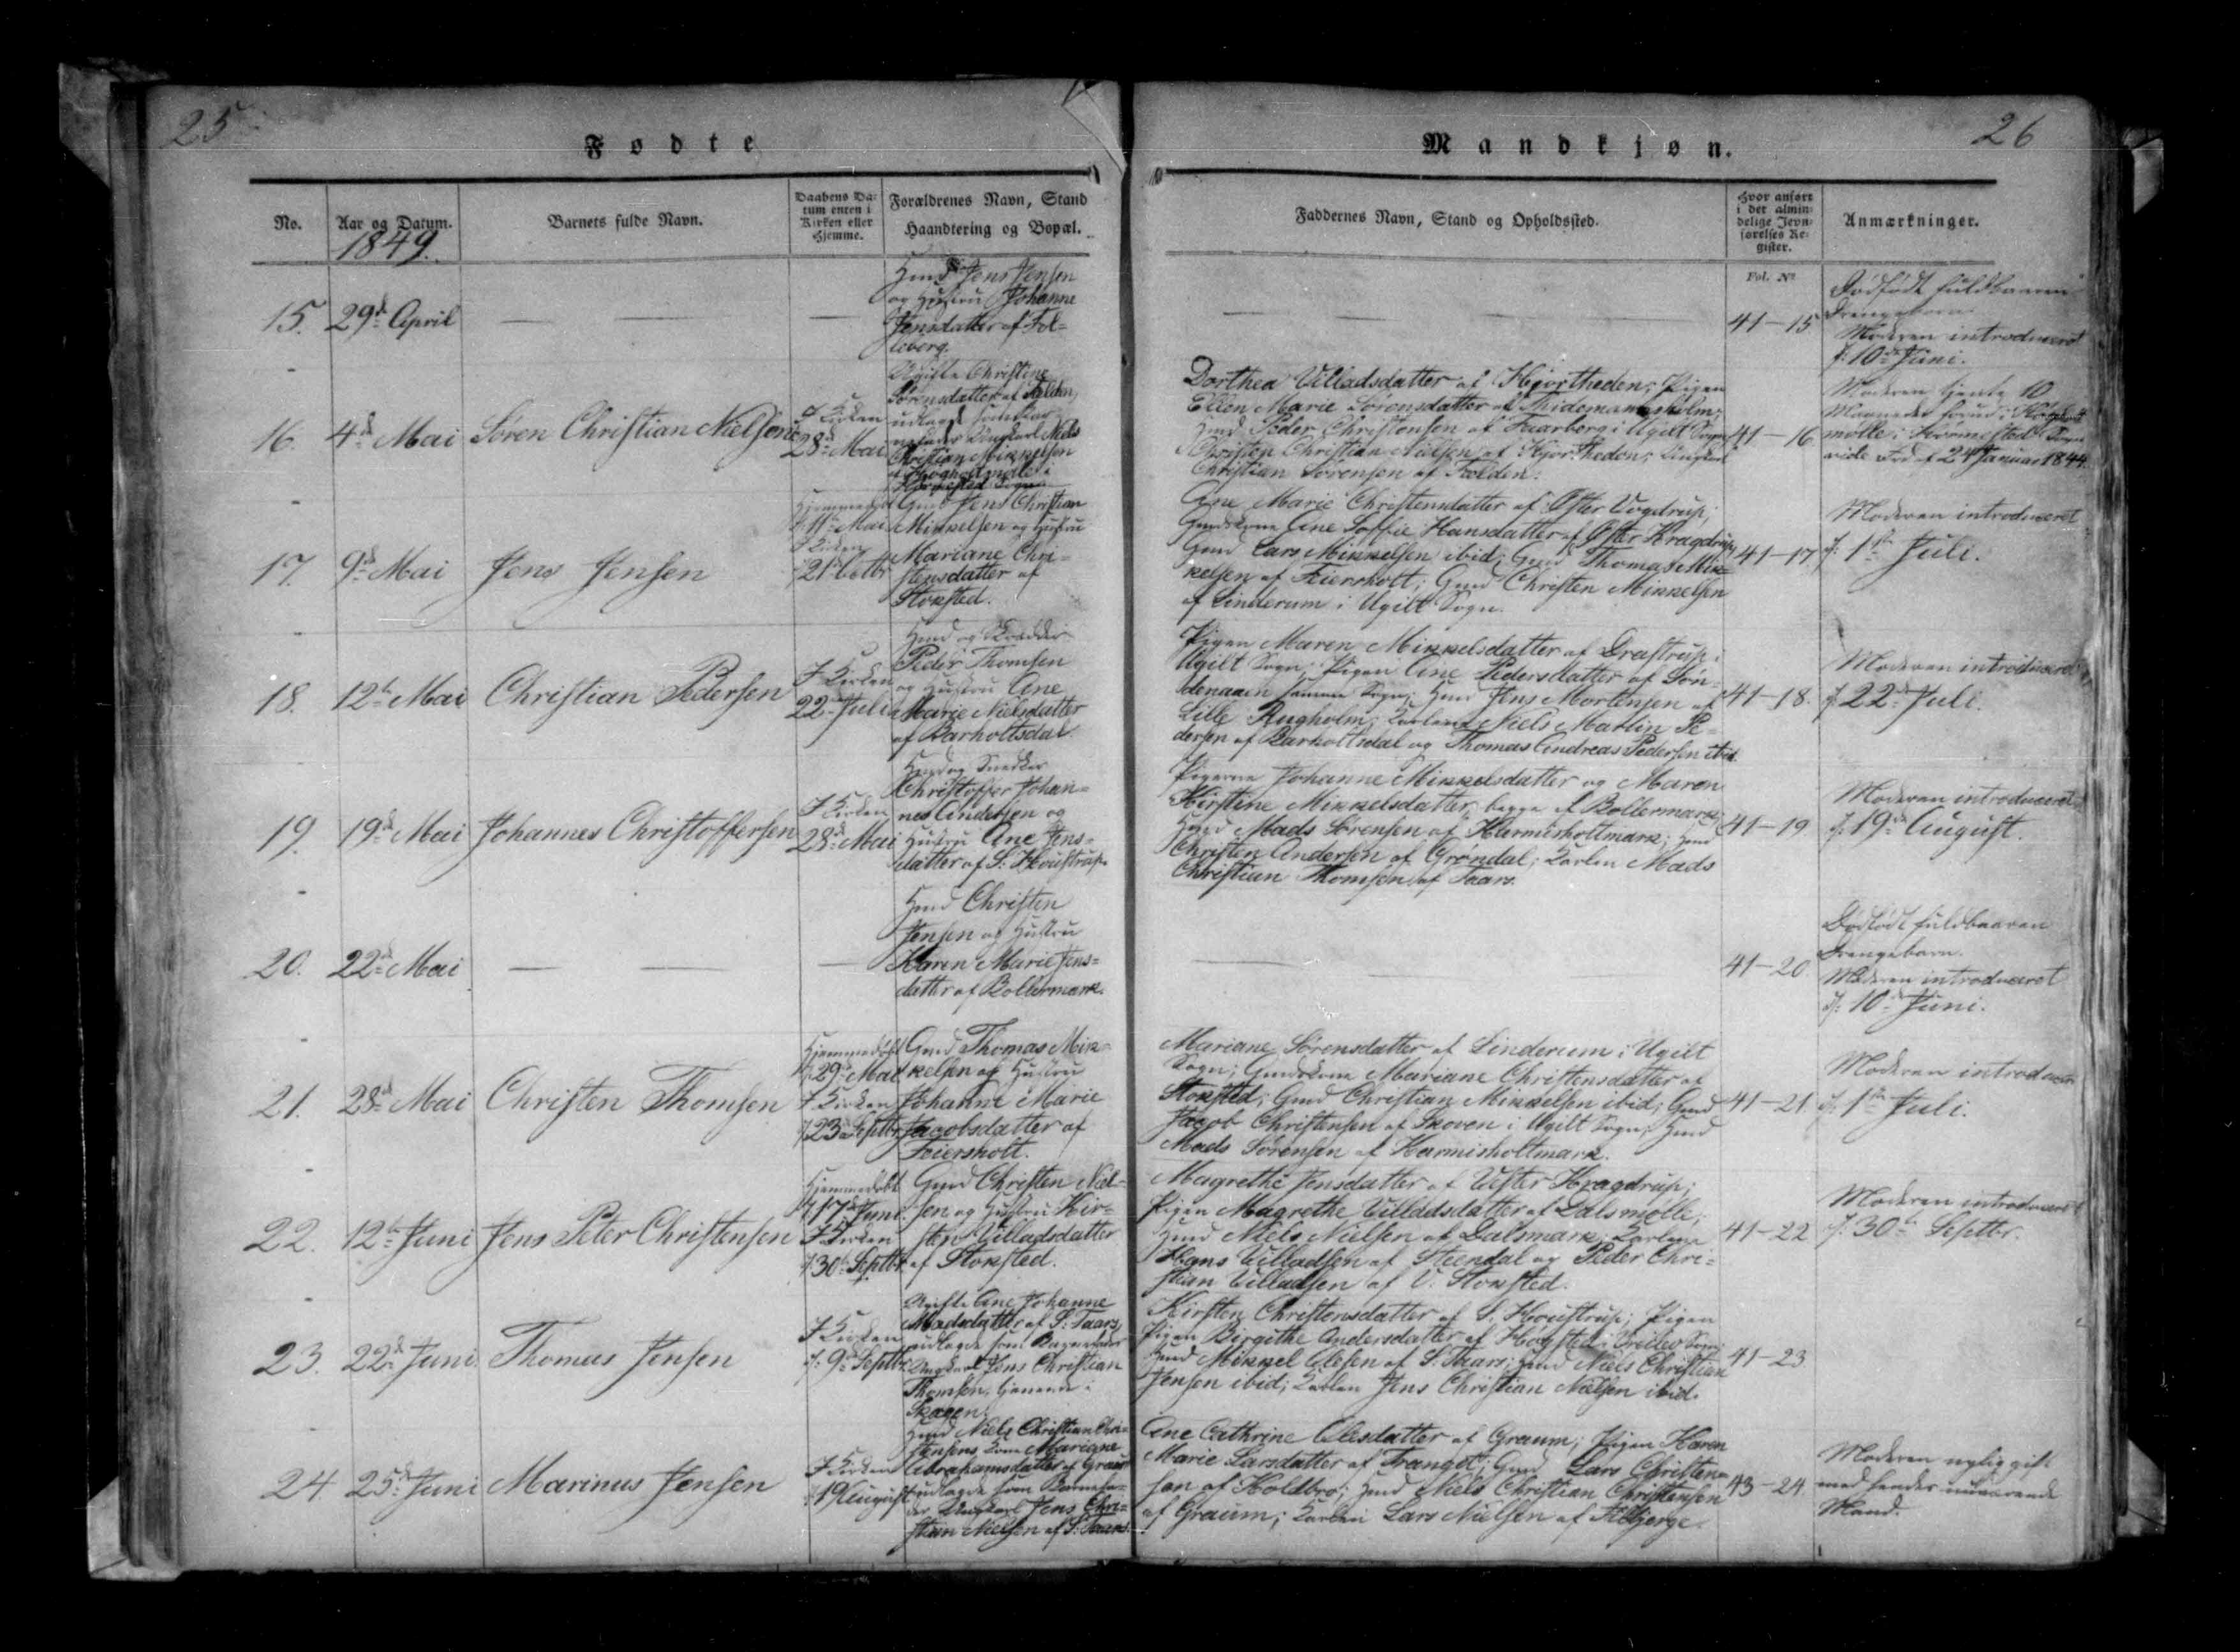 25
Fødte
Mandkjøn.
26
No.
Aar og Datum.
1849.
Barnets fulde Navn.
Daabens Da-
tum enten i
Kirken eller
Hjemme.
Forældrenes Navn, Stand
Haandtering og Bopæl.
Faddernes Navn, Stand og Opholdssted.
Hvor anført
i det almin-
delige Jevn-
førelses Re-
gister.
Anmærkninger.
Fol. No
15.
29de April
Huusmd Jens Jensen
og Hustru Johanne
Jensdatter af Fol-
leberg.
41-15
Dødfødt fuldbaaren
Drengebarn.
Moderen introduceret
d: 10de Juni.
16.
4de Mai
Søren Christian Nielsen
I Kirken
28de Mai
Ugifte Christine
Sørensdatter af Fælden,
udlagt som Bar-
nefader Ungkarl Niels
Christian Mikkelsen
Dorthea Villadsdatter af Hjortheden; Pigen
Ellen Marie Sørensdatter af Thidemandsholm;
Huusmd Peder Christensen af Faarberg i Ugilt Sogn;
Christen Christian Nielsen af Hjortheden; Ungkarl
Christian Sørensen af Fælden.
41-16
Moderen tjente 10
Maaneder forud i
mølle i Sogn
vide Frd af 24 Januar 1844.
17.
9de Mai
Jens Jensen
Hjemmedøbt
11te Mai
I Kirken
21de Octbr
Gmd Jens Christian
Mikkelsen og Hustru
Mariane Chri-
stensdatter af
Stoksted.
Ane Marie Christensdatter af Øster Vogdrup;
Gmdskone Ane Soffie Hansdatter af Øster Kragdrup;
Gmd Lars Mikkelsen ibid; Gmd Thomas Mik-
kelsen af Feiersholt; Gmd Christen Mikkelsen
af Linderum i Ugilt Sogn.
41-17.
Moderen introduceret
d: 1ste Juli.
18.
12te Mai
Christian Pedersen
I Kirken
22de Juli
Huusmd og Skrædder
Peder Thomsen
og Hustru Ane
Marie Nielsdatter
af Barholtsdal.
Pigen Maren Mikkelsdatter af Drastrup i
Ugilt Sogn; Pigen Ane Pedersdatter af Søn-
samme Sogn; Huusmd Jens Mortensen af
Lille Rugholm; Karlene Niels Martin Pe-
dersen af Barholtsdal og Thomas Andreas Pedersen ibid.
41-18.
Moderen introduceret
d: 22de Juli.
19.
19de Mai
Johannes Christoffersen
I Kirken
28de Mai
Huusmd og Snedker
Christoffer Johan-
nes Andersen og
Hustru Ane Jens-
datter af S. Houstrup.
Pigerne Johanne Mikkelsdatter og Maren
Kirstine Mikkelsdatter, begge af Bollermark;
Huusmd Mads Sørensen af Harmisholtmark; Huusmd
Christen Andersen af Grøndal; Karlen Mads
Christian Thomsen af Taars.
41-19
Moderen introduceret
d: 19de August.
20.
22de Mai
Huusmd Christen
Jensen og Hustru
Karen Marie Jens-
datter af Bollermark.
41-20
Dødfødt fuldbaaren
Drengebarn.
Moderen introduceret
d: 10de Juni.
21.
28de Mai
Christen Thomsen
Hjemmedøbt
29de Mai
I Kirken
23de Septbr
Gmd Thomas Mik-
kelsen og Hustru
Johanne Marie
Jacobsdatter af
Feiersholt.
Mariane Sørensdatter af Linderum i Ugilt
Sogn; Gmdskone Mariane Christensdatter af
Stoksted; Gmd Christian Mikkelsen ibid; Gmd
Jacob Christensen af Skoven i Ugilt Sogn; Huusmd
Mads Sørensen af Harmisholtmark.
41-21
Moderen introduceret
d: 1ste Juli.
22.
12te Juni
Jens Peter Christensen
Hjemmedøbt
17de Juni
I Kirken
30te Septbr
Gmd Christen Niel-
sen og Hustru Kir-
sten Villadsdatter
af Stoksted.
Magrethe Jensdatter af Vester Kragdrup;
Pigen Magrethe Villadsdatter af Dalsmølle;
Huusmd Niels Nielsen af Dalsmark; Karlene
Hans Villadsen af Steendal og Peder Chri-
stian Villadsen af V. Stoksted.
41-22
Moderen introduceret
d: 30te Septbr.
23.
22de Juni
Thomas Jensen
I Kirken
d: 9de Septbr
Ugifte Ane Johanne
Madsdatter af S: Taars,
udlagde som Barnefader
Ungkarl Jens Christian
Thomsen, tjenende i
Skagen.
Kirsten Christensdatter af S. Houstrup; Pigen
Pigen Birgithe Andersdatter af Høgsted i Vreilev Sogn;
Huusmd Mikkel Olesen af S. Taars; Huusmd Niels Christian
Jensen ibid; Karlen Jens Christian Nielsen ibid.
41-23
24.
25de Juni
Marinus Jensen
I Kirken
19 August
Huusmd Niels Christian Chri-
stensens Kone Mariane
Abrahamsdatter af Graum
udlagde som Barnefa-
der Ungkarl Jens Chri-
stian Nielsen af S. Taars.
Ane Cathrine Olesdatter af Graum; Pigen Karen
Marie Larsdatter af Tranget; Gmd Lars Christen-
sen af Holdbro; Huusmd Niels Christian Christensen
af Graum; Karlen Lars Nielsen af Filbjerge.
43-24
Moderen nylig gift
med hendes nuværende
Mand.